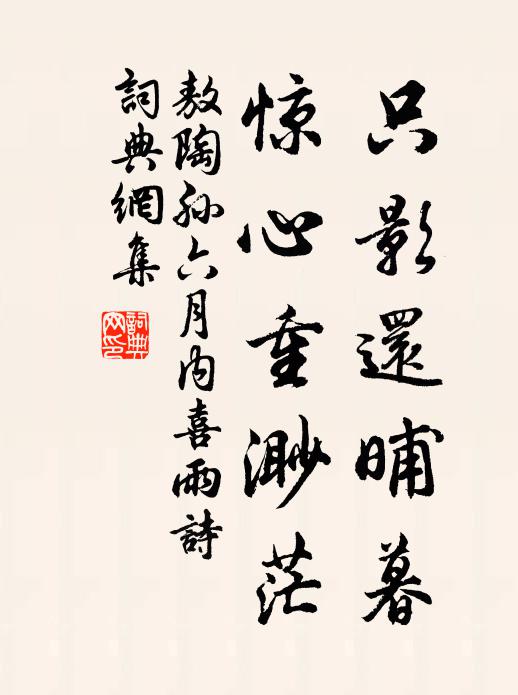 只影還晡暮
惊心重渺茫
敖陶孙六月内喜雨詩
詞典網集
詞典
网印